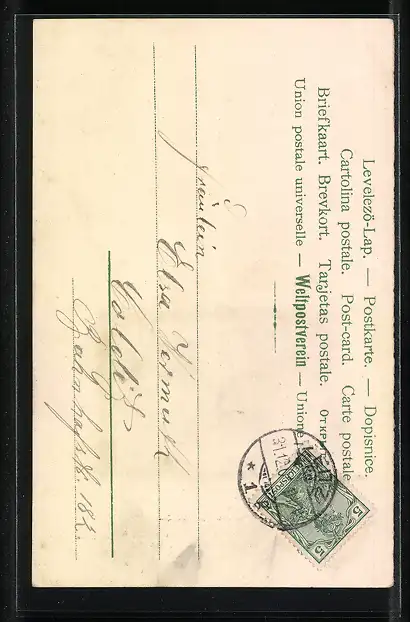 Levelező-Lap. — Postkarte. — Dopisnice.
Cartolina postale. Post-card. Carte postale
Briefkaart. Brevkort. Tarjetas postale. Откры
Union postale universelle — Weltpostverein — Unione
5
5
31.12.
* 1.
Fräulein
Elsa Wermuth
Colditz
Bahnhofstr. 182.